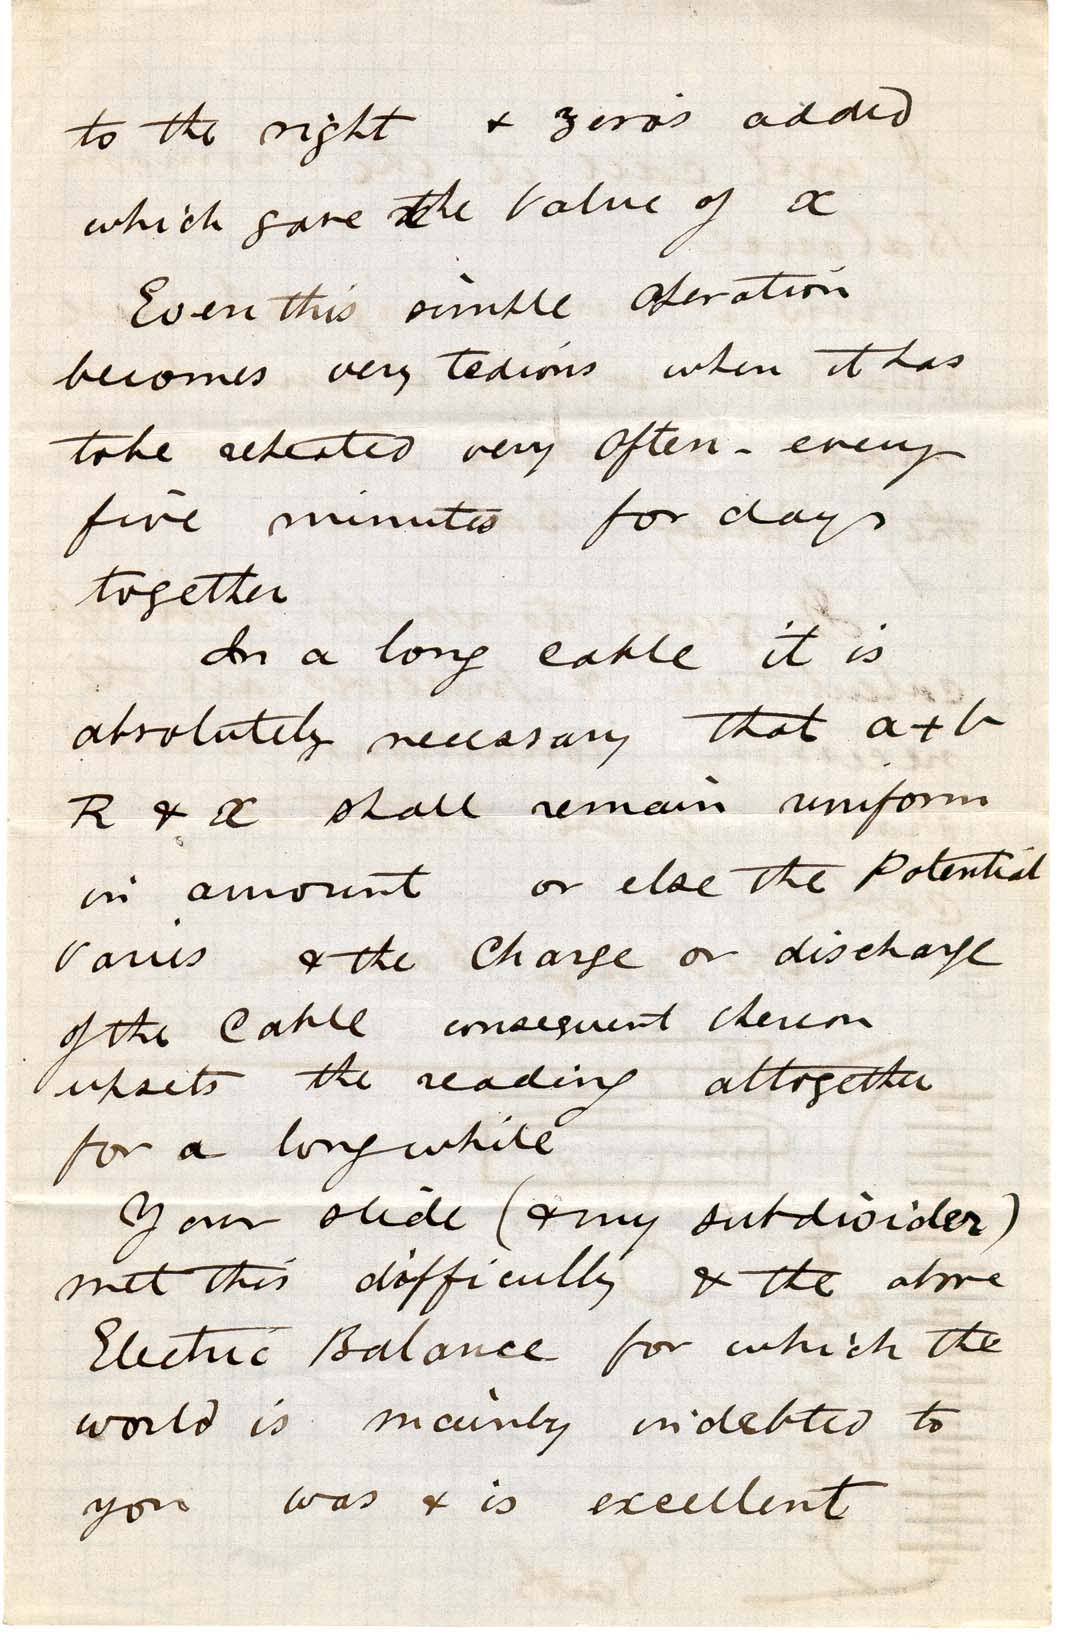 to the right & zeros added
which gave the value of x
Even this simple operation
becomes very tedious when it has
to be repeated very often - every
five minutes for days
together
In a long cable it is
absolutely necessary that a + b
R & x shall remain uniform
in amount or else the Potential
Varies & the Charge or discharge
of the Cable consequent thereon
upsets the reading altogether
for a long while
Your slide (& my subdivider)
met this difficulty & the above
Electric Balance for which the
world is mainly indebted to
you was & is excellent